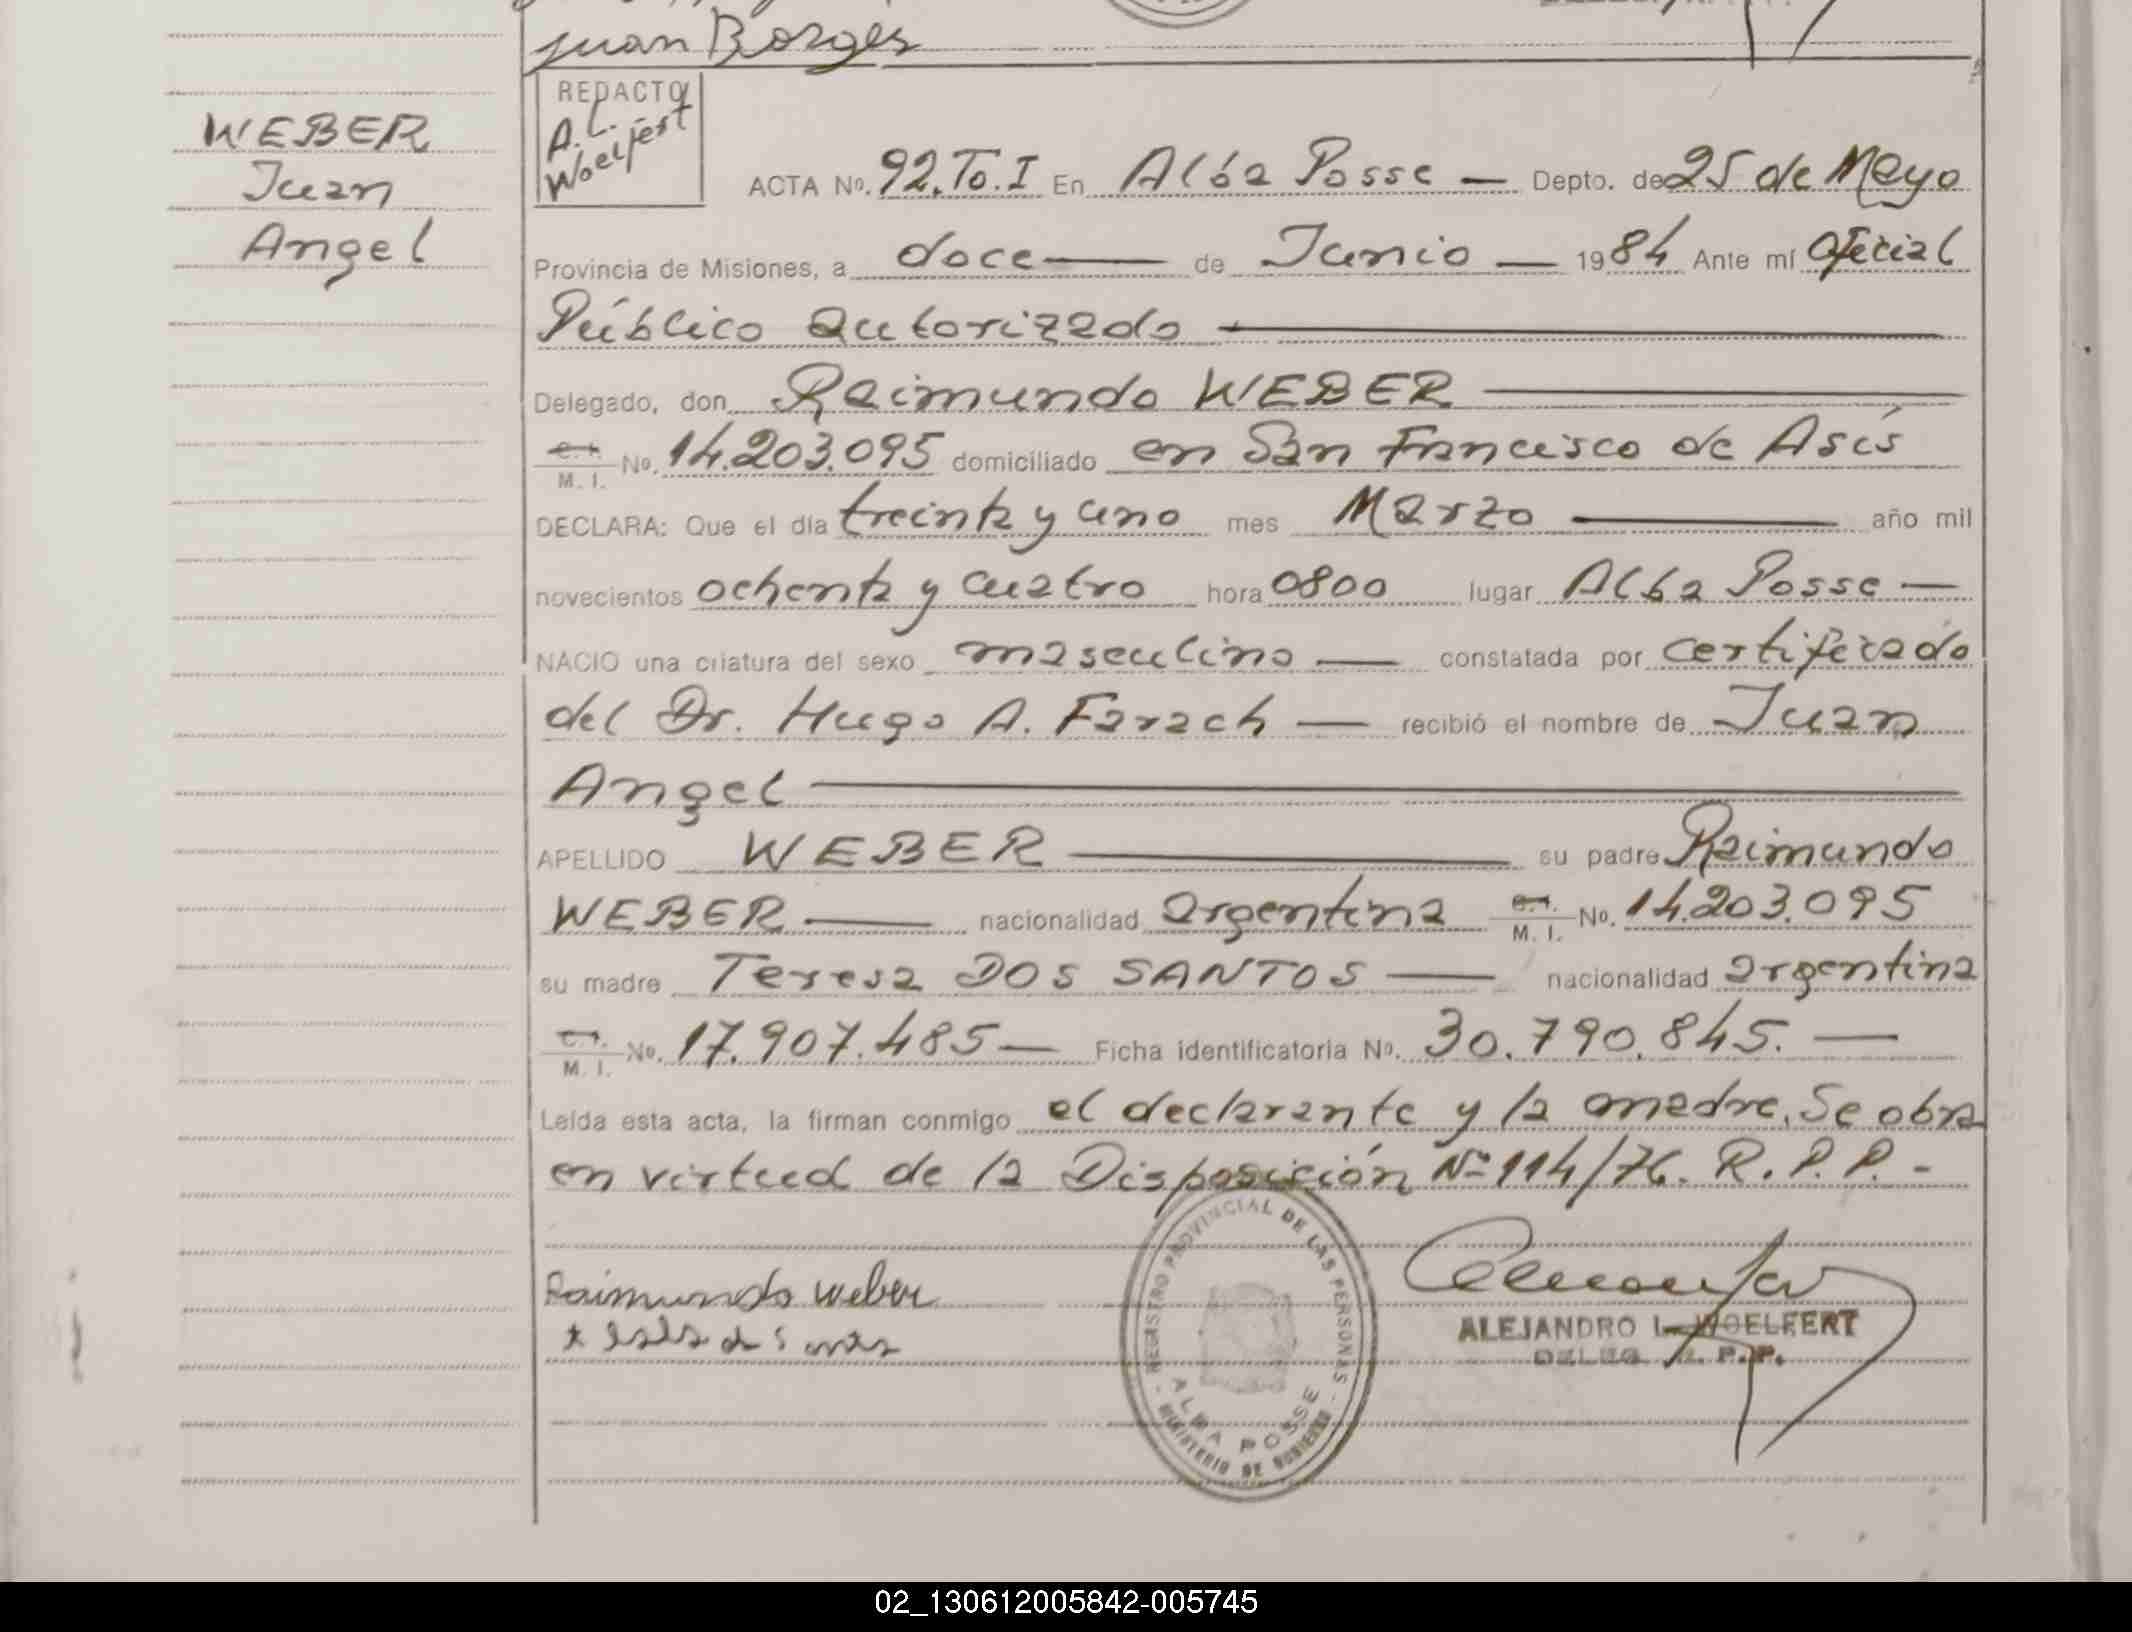 Juan Borges
WEBER
Juan
Angel
REDACTO
A. L.
Woelfert
ACTA No. 92. To. I En Alba Posse — Depto. de 25 de Mayo
Provincia de Misiones, a doce — de Junio — 1984 Ante mí Oficial
Público autorizado —
Delegado, don Raimundo WEBER —
C. I. / M. I. No. 14.203.095 domiciliado en San Francisco de Asís
DECLARA: Que el día treinta y uno mes Marzo — año mil
novecientos ochenta y cuatro hora 0800 lugar Alba Posse —
NACIO una criatura del sexo masculino — constatada por certificado
del Dr. Hugo A. Farach — recibió el nombre de Juan
Angel —
APELLIDO WEBER — su padre Raimundo
WEBER — nacionalidad argentina C. I. / M. I. No. 14.203.095
su madre Teresa DOS SANTOS — nacionalidad argentina
C. I. / M. I. No. 17.907.485 — Ficha identificatoria No. 30.790.845. —
Leída esta acta, la firman conmigo el declarante y la madre. Se obra
en virtud de la Disposición Nº 114/76. R. P. P. -
REGISTRO PROVINCIAL DE LAS PERSONAS
ALBA POSSE
MINISTERIO DE GOBIERNO
Raimundo Weber
ALEJANDRO L. WOELFERT
DELEG. R. P. P.
02_130612005842-005745